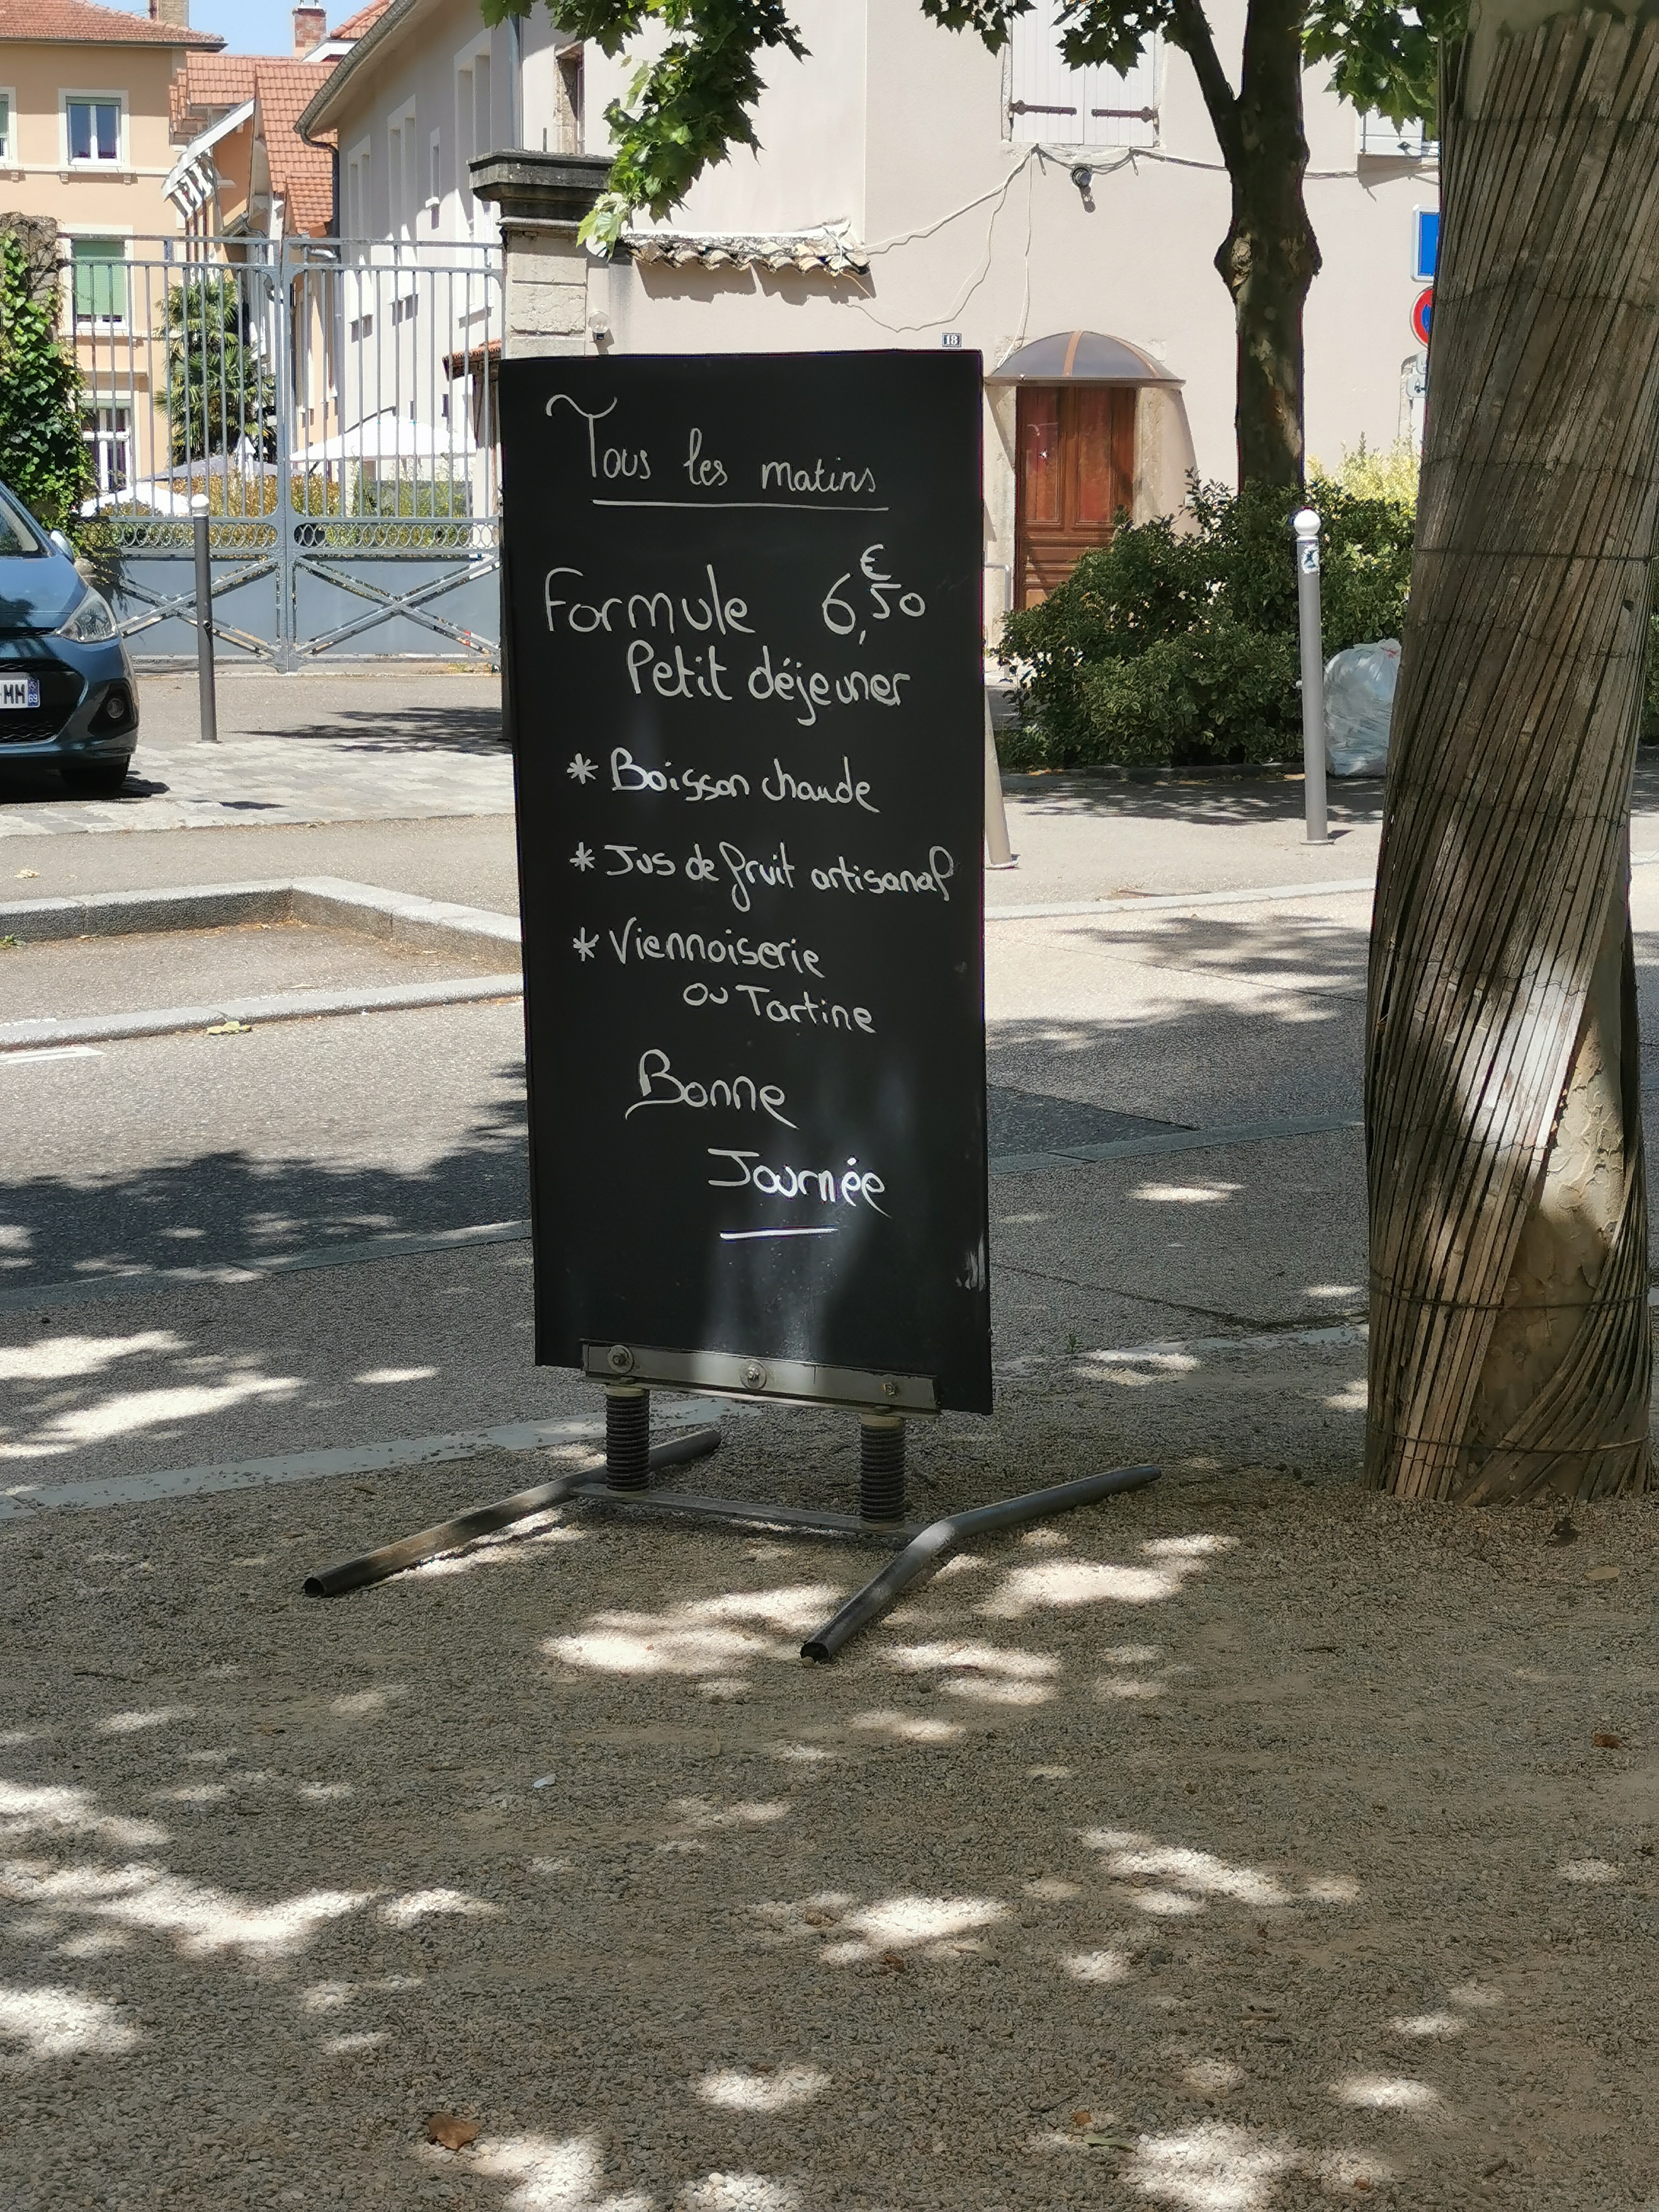 Tous les matins
Formule 6,50€
Petit déjeuner
* Boisson chaude
* Jus de fruit artisanal
* Viennoiserie
ou Tartine
Bonne
Journée
18
MM
69